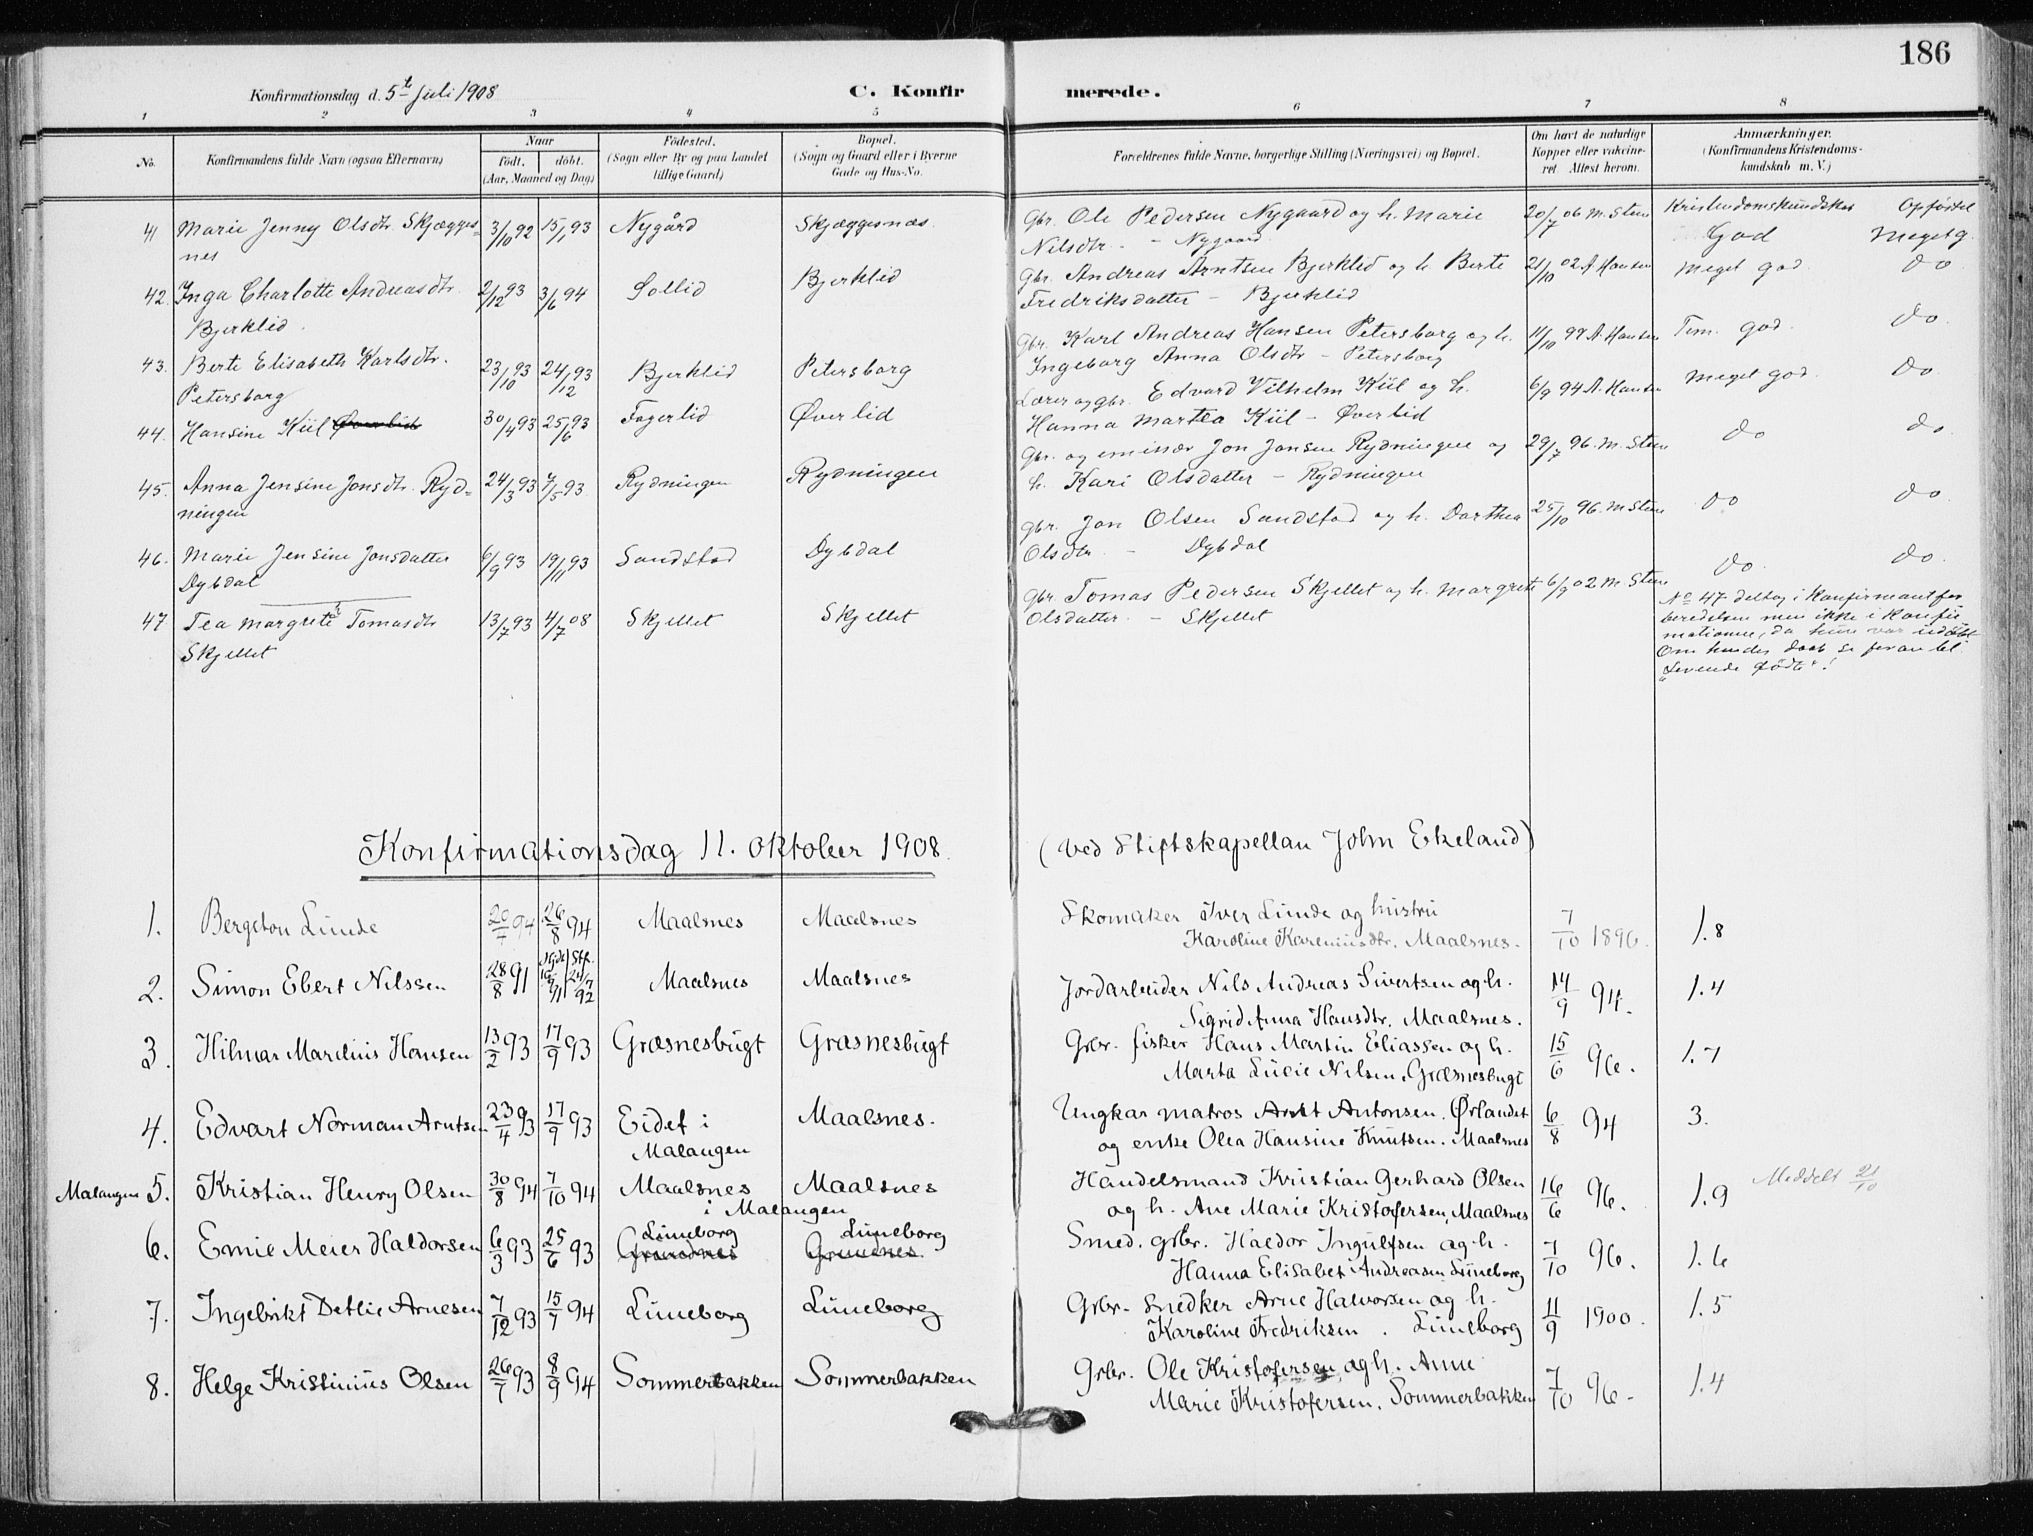 186
Konfirmationsdag d. 5te Juli 1908
C. Konfirmerede.
1 2 3 4 5 6 7 8
No.
Konfirmandens fulde Navn (ogsaa Efternavn)
Naar
født. døbt.
(Aar, Maaned og Dag)
Fødested.
(Sogn eller By og paa Landet
tillige Gaard)
Bopæl.
(Sogn og Gaard eller i Byerne
Gade og Hus-No.
Forældrenes fulde Navne, borgerlige Stilling (Næringsvei) og Bopæl.
Om havt de naturlige
Kopper eller vakcine-
ret Attest herom.
Anmærkninger.
(Konfirmandens Kristendoms-
kundskab m. V.)
Kristendomskundskab Opførsel
41 Marie Jenny Olsdtr. Skjægges= 3/10 92 15/1 93 Nygård Skjæggesnæs. Gbr. Ole Pedersen Nygaard og h. Marie 20/7 06 M. Steen God Meget g.
nes Nilsdtr. – Nygaard
42. Inga Charlotte Andreasdtr. 2/12 93 3/6 94 Sollid Bjerklid Gbr. Andreas Arntsen Bjerklid og h. Berte 21/10 02 A. Hansen Meget god. do
Bjerklid. Fredriksdatter – Bjerklid
43. Berte Elisabeth Karlsdtr. 23/10 93 24/12 93 Bjerklid Petersborg Gbr. Karl Andreas Hansen Petersborg og h. 11/10 99 A. Hansen Tem. god. do.
Petersborg Ingeborg Anna Olsdtr – Petersborg
44. Hansine Kiil Øverlid 30/4 93 25/6 93 Fagerlid Øverlid Lærer og gbr. Edvard Vilhelm Kiil og h. 6/9 94 A. Hansen Meget god. do.
Hanna Martea Kiil – Øverlid
45. Anna Jensine Jonsdtr. Ryd= 24/3 93 7/5 93 Rydningen Rydningen Gbr. og emissær Jon Jonsen Rydningen og 29/7 96. M. Steen do do.
ningen h. Kari Olsdatter – Rydningen
46. Marie Jensine Jonsdatter 6/9 93 19/11 93 Sandstad Dybdal Gbr. Jon Olsen Sandstad og h. Dorthea 25/10 96. M Steen do do.
Dybdal Olsdtr. – Dybdal
47 Tea Margrete Tomasdtr 13/7 93 4/7 08 Skjellet Skjellet Gbr. Tomas Pedersen Skjellet og h. Margrete 6/9 02 M. Steen do. do.
Skjellet Olsdatter. – Skjellet
No 47 deltog i Konfirmantfor
beredelsen men ikke i Konfir
mationen, da hun var udøbt
Om hendes daab se foran bl.
"Levende fødte"!
Konfirmationsdag 11. oktober 1908. (ved Stiftskapellan John Ekeland)
1. Bergeton Lunde 94 26/8 94 Maalsnes Maalsnes Skomaker Iver Lunde og hustru 7/10 1896. 1.8
Karoline Kareniusdtr. Maalsnes.
2. Simon Ebert Nilssen 28/8 91 92 Maalsnes Maalsnes Jordarbeider Nils Andreas Sivertsen og h. 14/9 94. 1.4
Sigrid Anna Hansdtr. Maalsnes.
3. Hilmar Marelius Hansen 13/2 93 17/9 93 Græsnesbugt Græsnesbugt Grbr. fisker Hans Martin Eliassen og h. 15/6 96. 1.7
Marta Lucie Nilsen. Græsnesbugt
4. Edvart Norman Arntsen 23/4 93 17/9 93 Eidet i Maalsnes. Ungkar matros Arnt Antonsen. Ørlandet 6/8 94 3.
Malangen og enke Olea Hansine Knutsen. Maalsnes
Malangen 5. Kristian Henry Olsen 30/8 94 7/10 94 Maalsnes Maalsnes Handelsmand Kristian Gerhard Olsen 16/6 96. 1.9 Meddelt 21/10
i Malangen og h. Ane Marie Kristofersen, Maalsnes
6. Emil Meier Haldorsen 6/3 93 25/6 93 Grundnes Luneborg Grundnes. Luneborg Smed. grbr. Haldor Ingulfsen og h. 7/10 96. 1.6
Hanna Elisabet Andreasen Luneborg
7. Ingebrikt Detlie Arnesen 7/12 93 15/7 94 Luneborg Luneborg Grbr. Snedker Arne Halvorsen og h. 11/9 1900. 1.5
Karoline Fredriksen. Luneborg
8. Helge Kristinius Olsen 26/7 93 8/9 94 Sommerbakken Sommerbakken Grbr. Ole Kristofersen og h. Anne 7/10 96 – 1.4
Marie Kristofersen. Sommerbakken